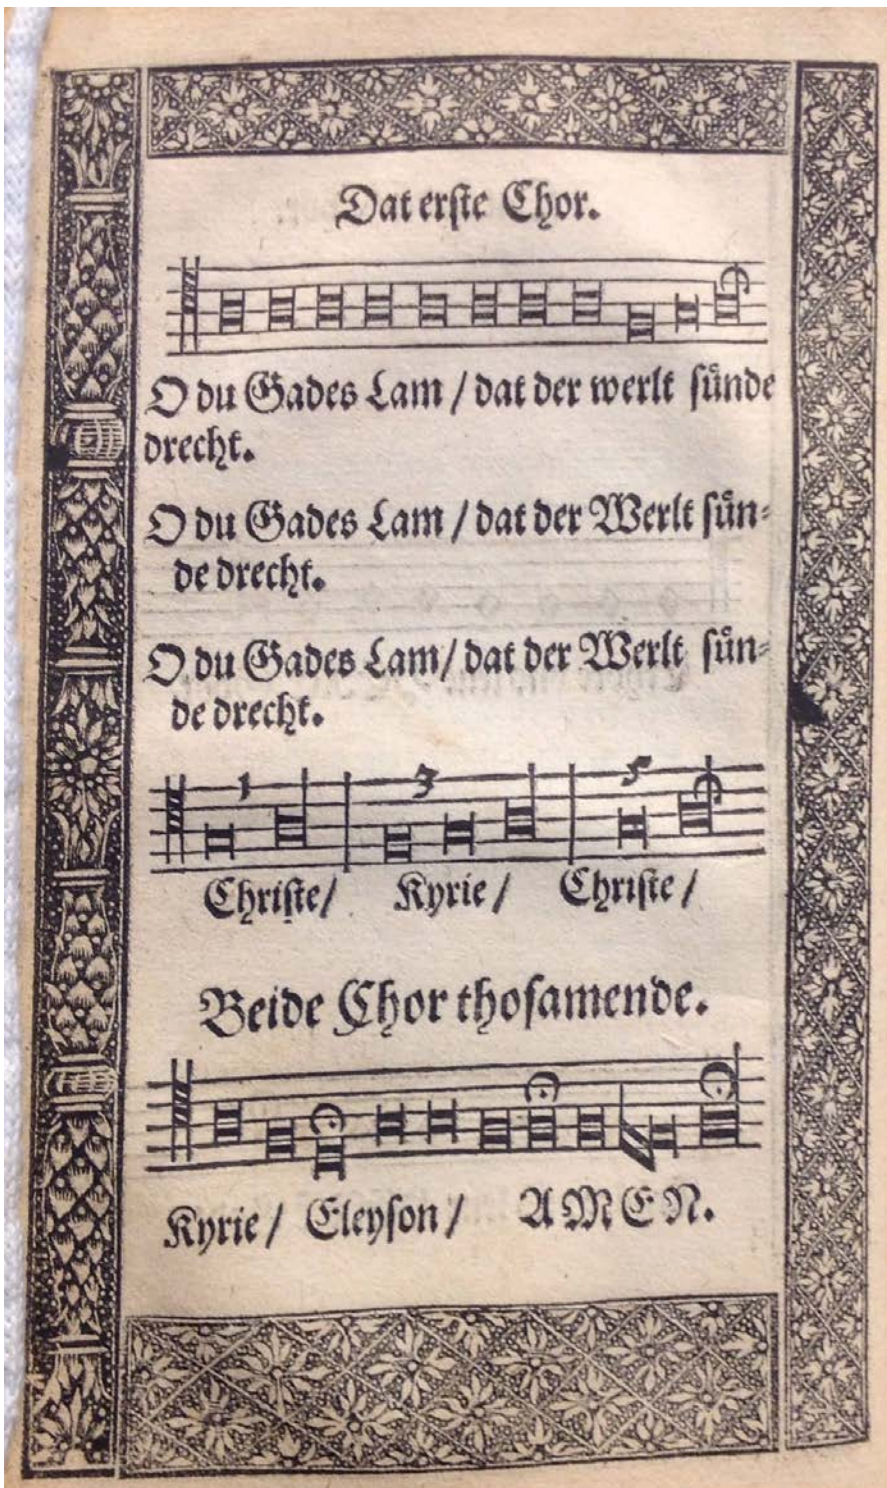 Dat erste Chor.
O du Gades Lam / dat der werlt sünde
drecht.
O du Gades Lam / dat der Werlt sün=
de drecht.
O du Gades Lam / dat der Werlt sün=
de drecht.
1 3 5
Christe / Kyrie / Christe /
Beide Chor thosamende.
Kyrie / Eleyson / AMEN.